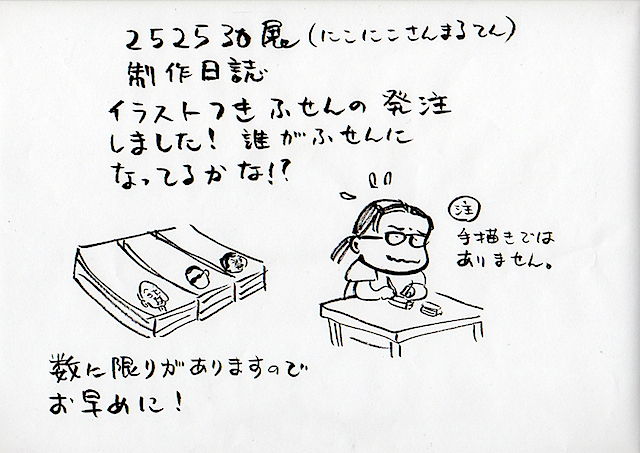 252530展(にこにこさんまるてん)
制作日誌
イラストつきふせんの発注
しました! 誰がふせんに
なってるかな!?
注
手描きでは
ありません。
数に限りがありますので
お早めに!